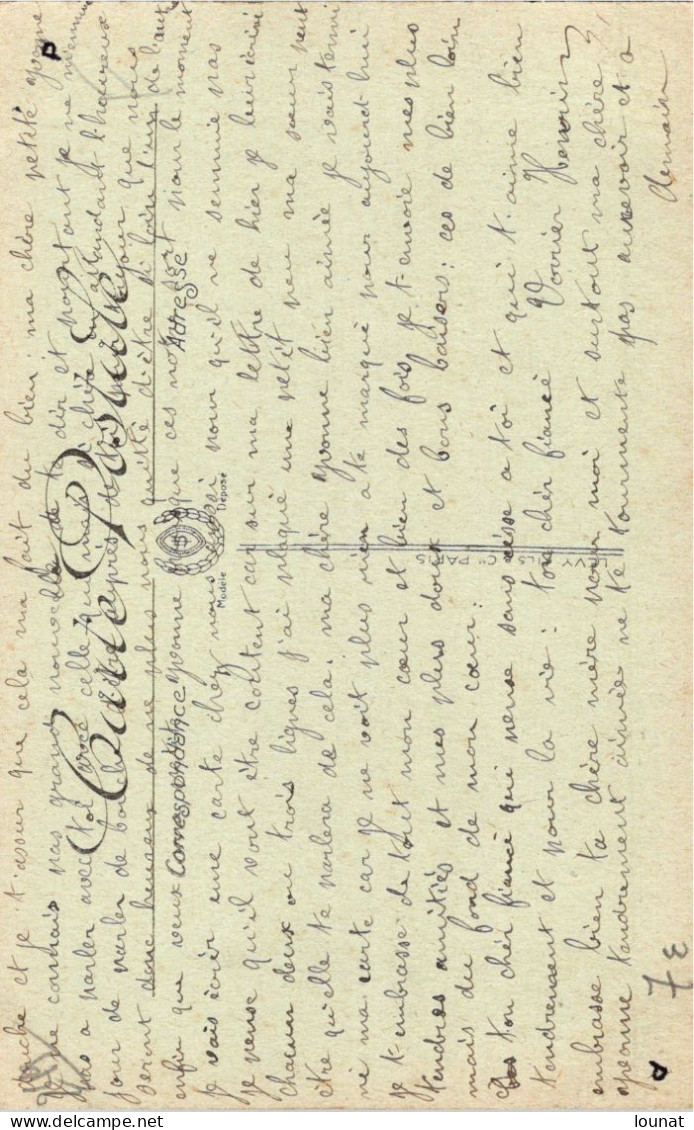 et je t'assur que cela ma fait du bien; ma chère petite yvonne
je ne connais pas grand nouvelle de te dir et pourtant je ne m'ennui
pas a parler avec toi avec celle qui mai si chère en attendant l'heureux
jour de parler de bouche au près de toi jour que nous
seront donc heureux de ne plus nous quitté d'être si loin l'un de l'autre
enfin que veux yvonne que ces not sort pour le moment
je vais écrir une carte chez nous aussi pour qu'il ne sennuie pas
je pense qu'il vont être contant car sur ma lettre de hier je leur écrivé
chacun deux ou trois lignes j'ai blagué une petit peu ma sœur peut
être qu'elle te parlera de cela. ma chère yvonne bien aimée je vais termi
né ma carte car je ne voit plus rien a te marqué pour aujourd-hui
je t-embrasse de tout mon cœur et bien des fois je t-envoie mes plus
tendres amitiés et mes plus doux et bons baisers: ces de bien loin
mais du fond de mon cœur:
ton chéri fiancé qui pense sans cesse a toi et qui t-aime bien
tendrement et pour la vie: ton chéri fiancé
Honoir
embrasse bien ta chère mère pour moi et surtout ma chère
yvonne tendrement aimée ne te tourmente pas aurevoir et a
demain
Carte Postale
Correspondance
Adresse
Modèle
Déposé
LEVY FILS & Cie PARIS
7 E